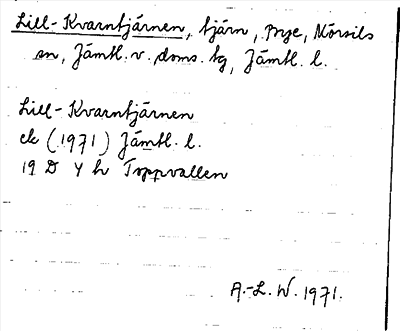 Lill-Kvarntjärnen, tjärn, Brye, Mörsils
sn, Jämtl. v. doms. tg, Jämtl. l.
Lill-Kvarntjärnen
ek (1971) Jämtl. l.
19 D 4 h Toppvallen
A.-L. W. 1971.